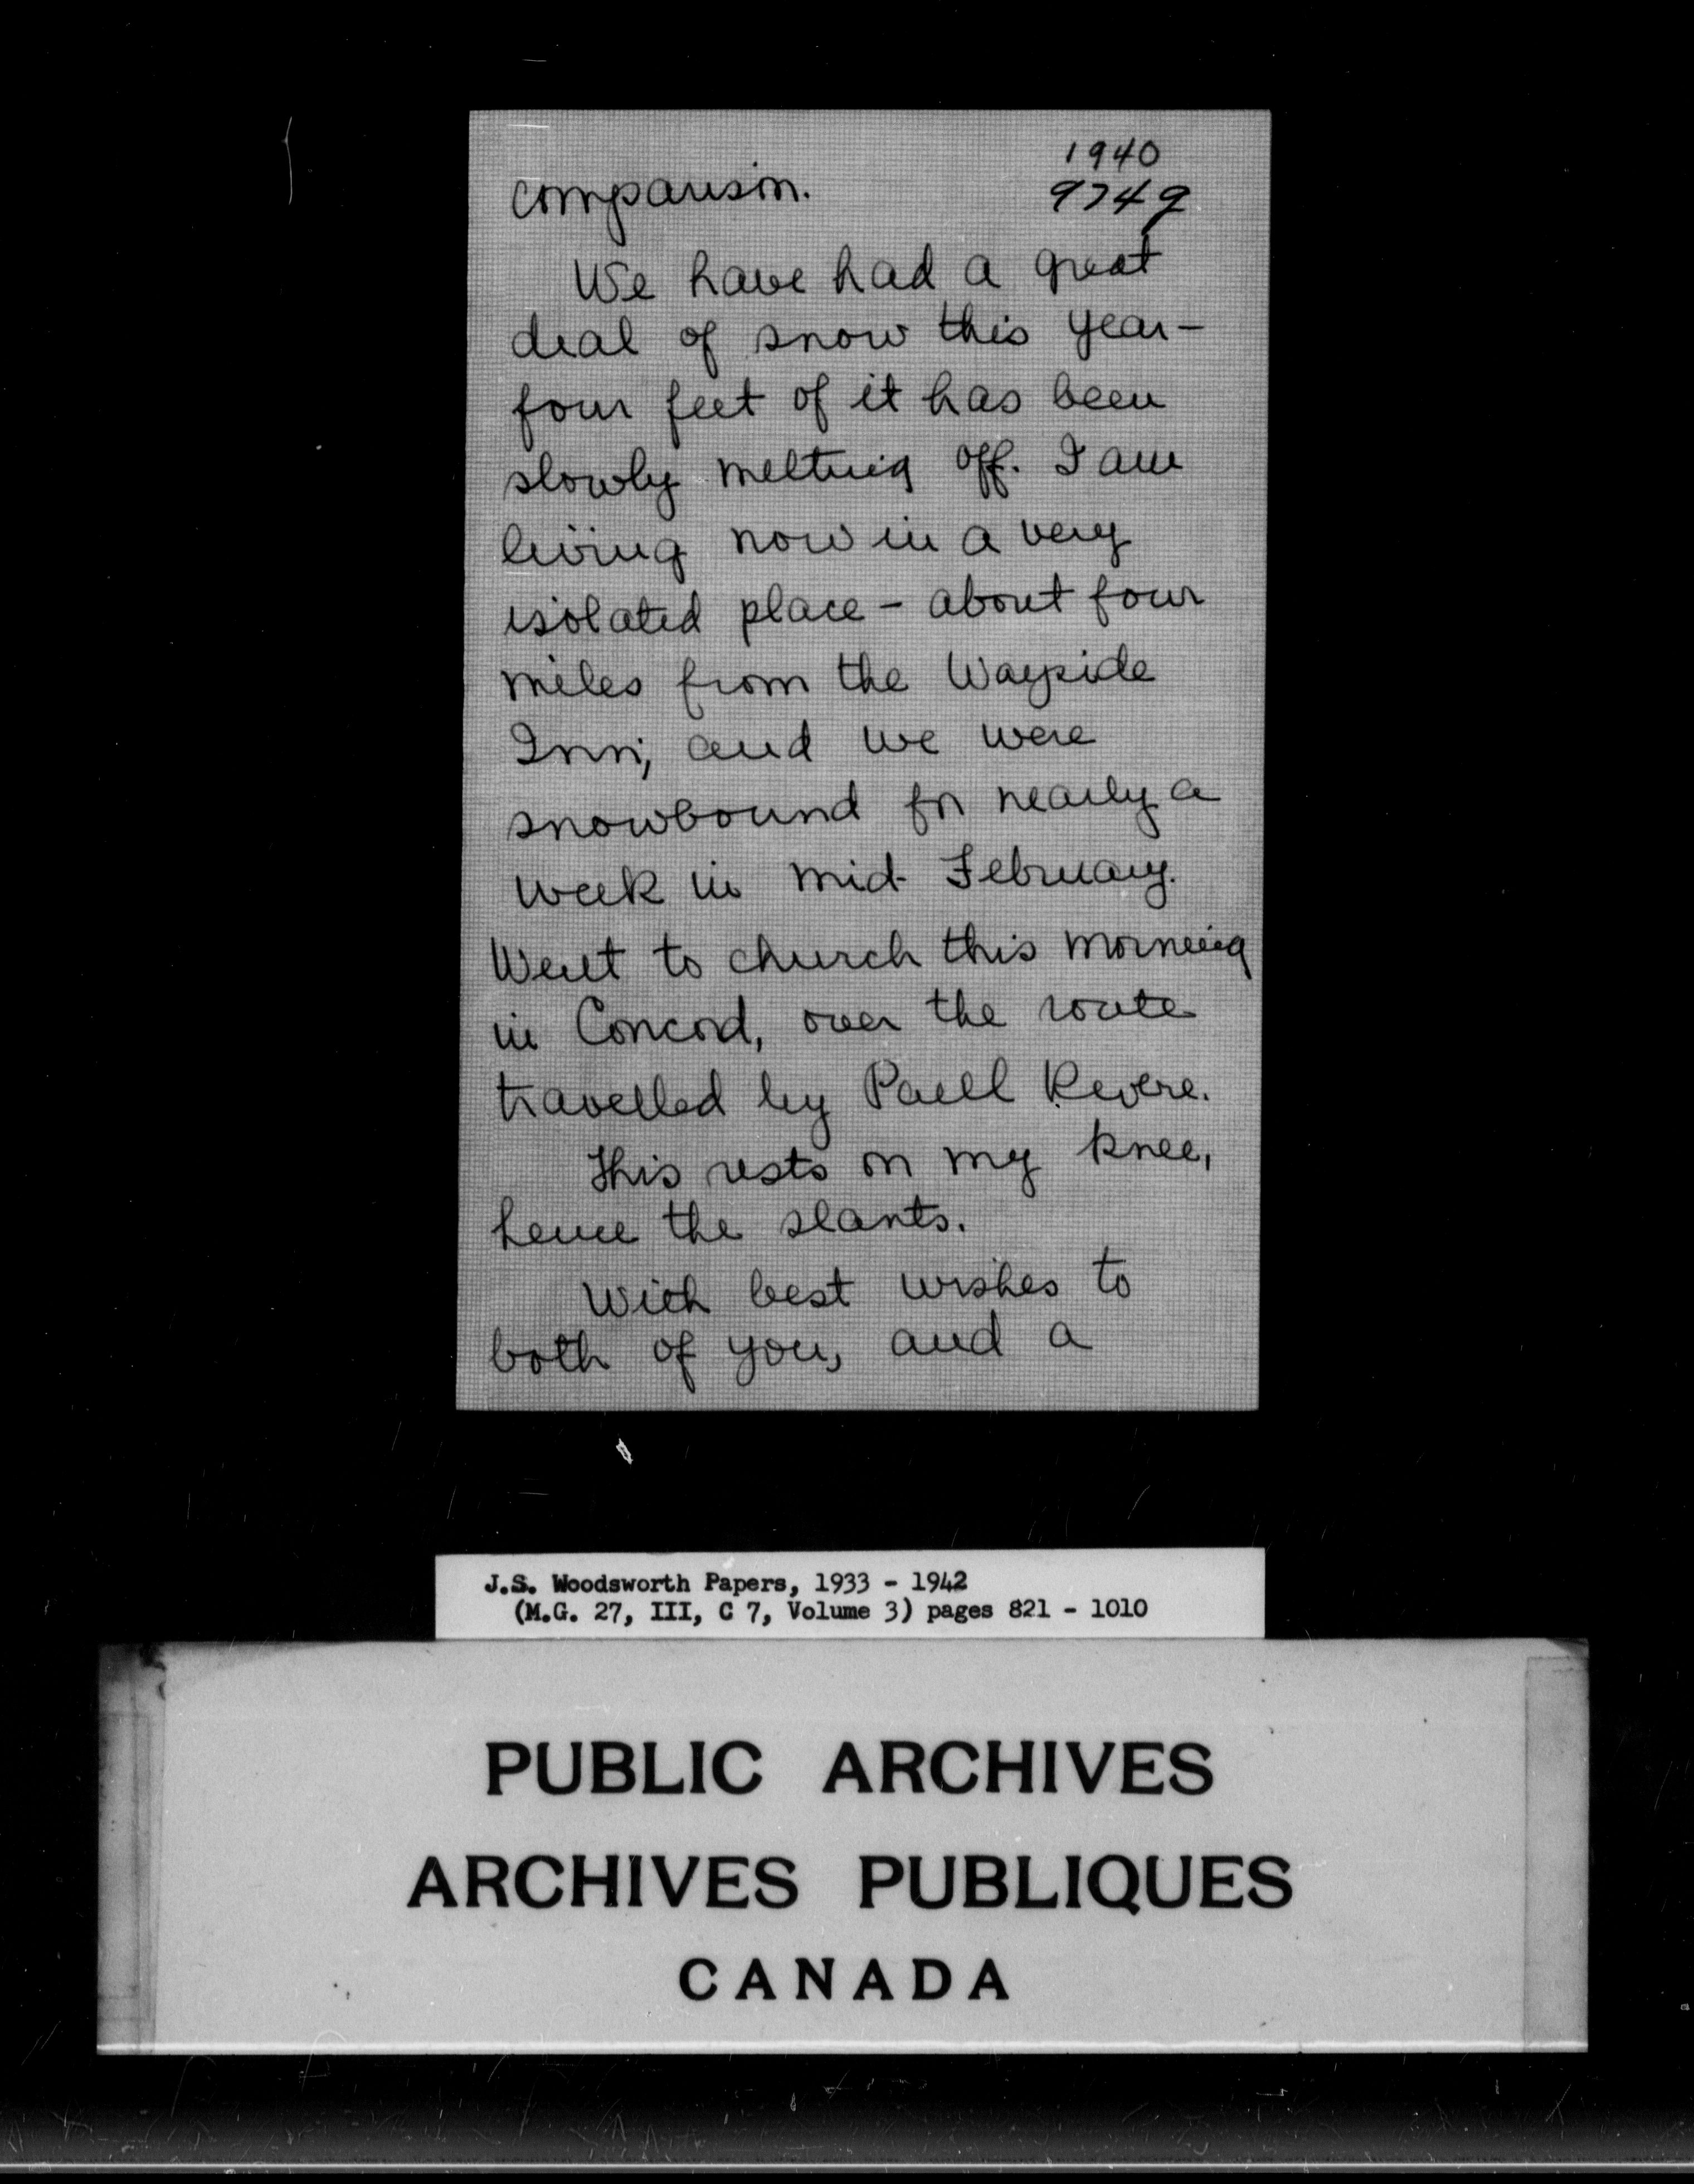 1940
comparison. 9749
We have had a great
deal of snow this year -
four feet of it has been
slowly melting off. I am
living now in a very
isolated place - about four
miles from the Wayside
Inn, and we were
snowbound for nearly a
week in mid-February.
Went to church this morning
in Concord, over the route
travelled by Paul Revere.
This rests on my knee,
hence the slants.
With best wishes to
both of you, and a
J.S. Woodsworth Papers, 1933 - 1942
(M.G. 27, III, C 7, Volume 3) pages 821 - 1010
PUBLIC ARCHIVES
ARCHIVES PUBLIQUES
CANADA